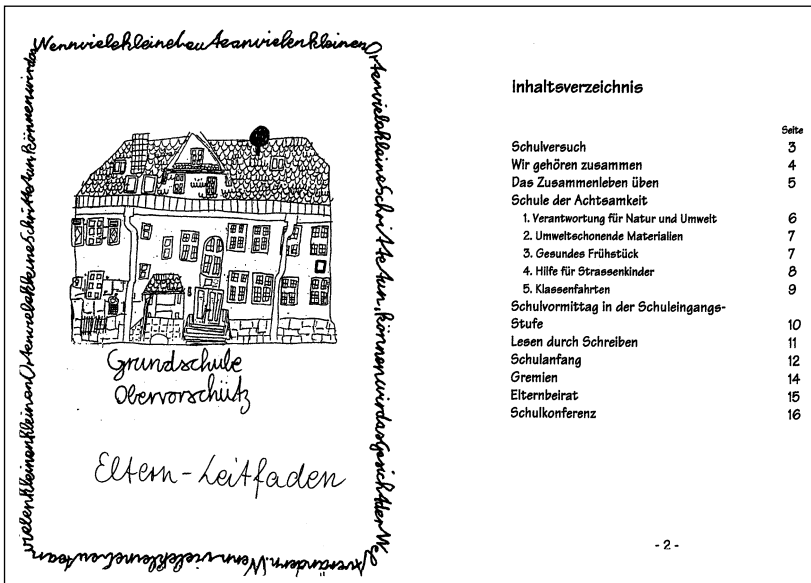 WennvielekleineLeuteanvielenkleinen
OrtenvielekleineSchrittetun,könnenwirdasGesichtderWel
tverändern.WennvielekleineLeutean
vielenkleinenkleinenOrtenvielekleineSchrittetunkönnenwirdas
Grundschule
Obervorschütz
Eltern-Leitfaden
Inhaltsverzeichnis
Seite
Schulversuch 3
Wir gehören zusammen 4
Das Zusammenleben üben 5
Schule der Achtsamkeit
1. Verantwortung für Natur und Umwelt 6
2. Umweltschonende Materialien 7
3. Gesundes Frühstück 7
4. Hilfe für Strassenkinder 8
5. Klassenfahrten 9
Schulvormittag in der Schuleingangs-
Stufe 10
Lesen durch Schreiben 11
Schulanfang 12
Gremien 14
Elternbeirat 15
Schulkonferenz 16
- 2 -